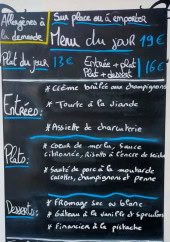 Allergènes à la demande
Sur place ou à emporter
Menu du jour 19€
Plat du jour 13€
Entrée + plat
Plat + dessert
16€
Entrées:
* Crème brûlée aux champignons
* Tourte à la viande
* Assiette de charcuterie
Plats:
* Coeur de merlu, sauce
citronnée, risotto à l'encre de seiche
* Sauté de porc à la moutarde
carottes, champignons et penne
Desserts:
* Fromage sec ou blanc
* Gâteau à la vanille et spéculoos
* Financier à la pistache